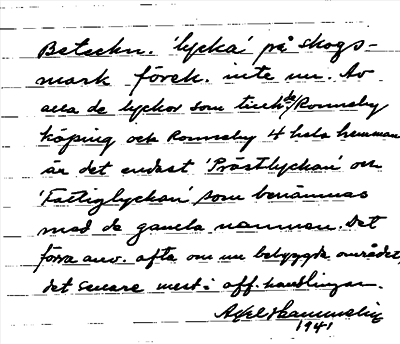 Beteckn. 'lycka' på skogs-
mark förek. inte nu. Av
alla de lyckor som tillh. de/Ronneby
köping och Ronneby 4 hela hemman
är det endast 'Prästlyckan' och
'Fattiglyckan' som benämnas
med de gamla namnen. Det
förra anv. ofta om nu bebyggda området,
det senare mest i off. handlingar.
Axel Hammelin
1941